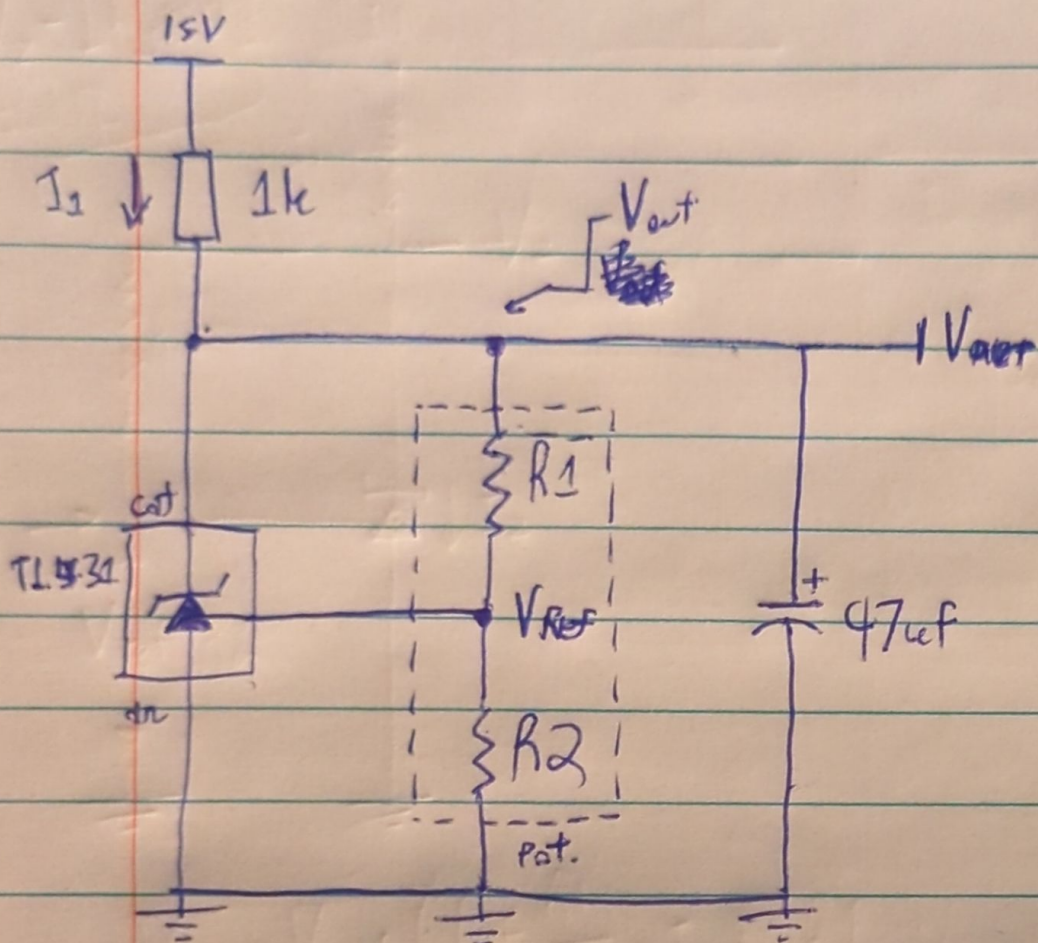 15V
I1
1k
Vout
Vout
cat
TL431
R1
VRef
+
47uf
an
R2
Pot.